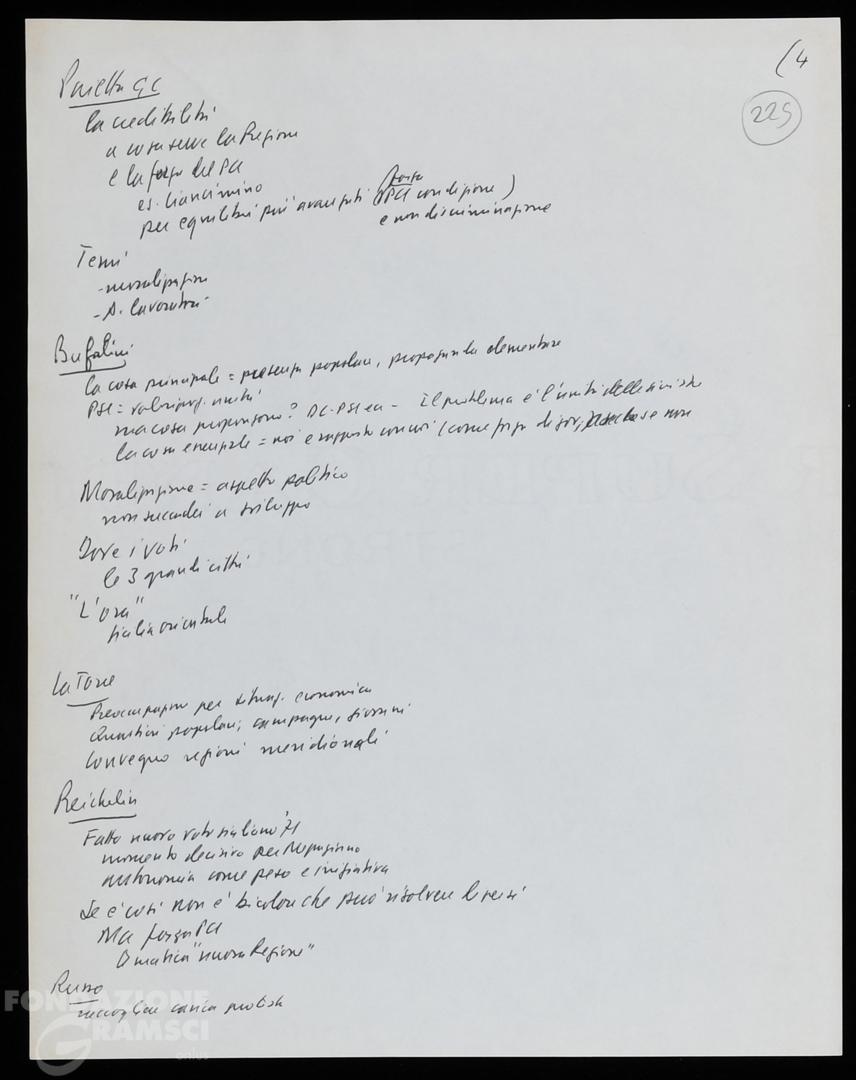 (4
225
Pajetta GC
la credibilità
a cosa serve la Regione
e la forza del PCI
es. Ciancimino
per equilibri più avanzati (forza PCI condizione)
e non discriminazione
Temi
- moralizzazione
- S. lavoratori
Bufalini
la cosa principale = presenza popolare, propaganda elementare
PSI = valorizz. unità
ma cosa propongono? DC-PSI ecc - Il problema è l'unità delle sinistre
la cosa principale = noi e rapporto con noi (come forza di gov,
se non
Moralizzazione = aspetto politico
non succede a sviluppo
Dove i voti
le 3 grandi città
"L'Ora"
Sicilia orientale
La Torre
Preoccupazione per situaz. economica
Quartieri popolari, campagne, giovani
Convegno regioni meridionali
Reichlin
Fatto nuovo voto siciliano '71
momento decisivo per Mezzogiorno
autonomia come peso e iniziativa
Se è così non è bicolore che può risolvere la crisi
Ma forza PCI
Tematica "nuova Regione"
Russo
raccogliere carica protesta
FONDAZIONE
GRAMSCI
onlus